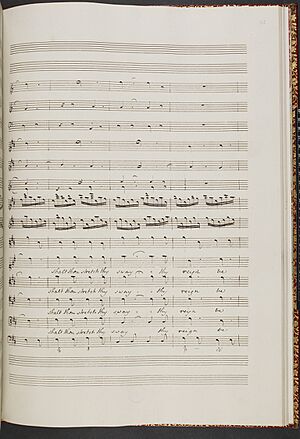 shalt thou stretch thy sway thy reign be
shalt thou stretch thy sway thy reign be
shalt thou stretch thy sway thy reign be
shalt thou stretch thy sway thy reign be